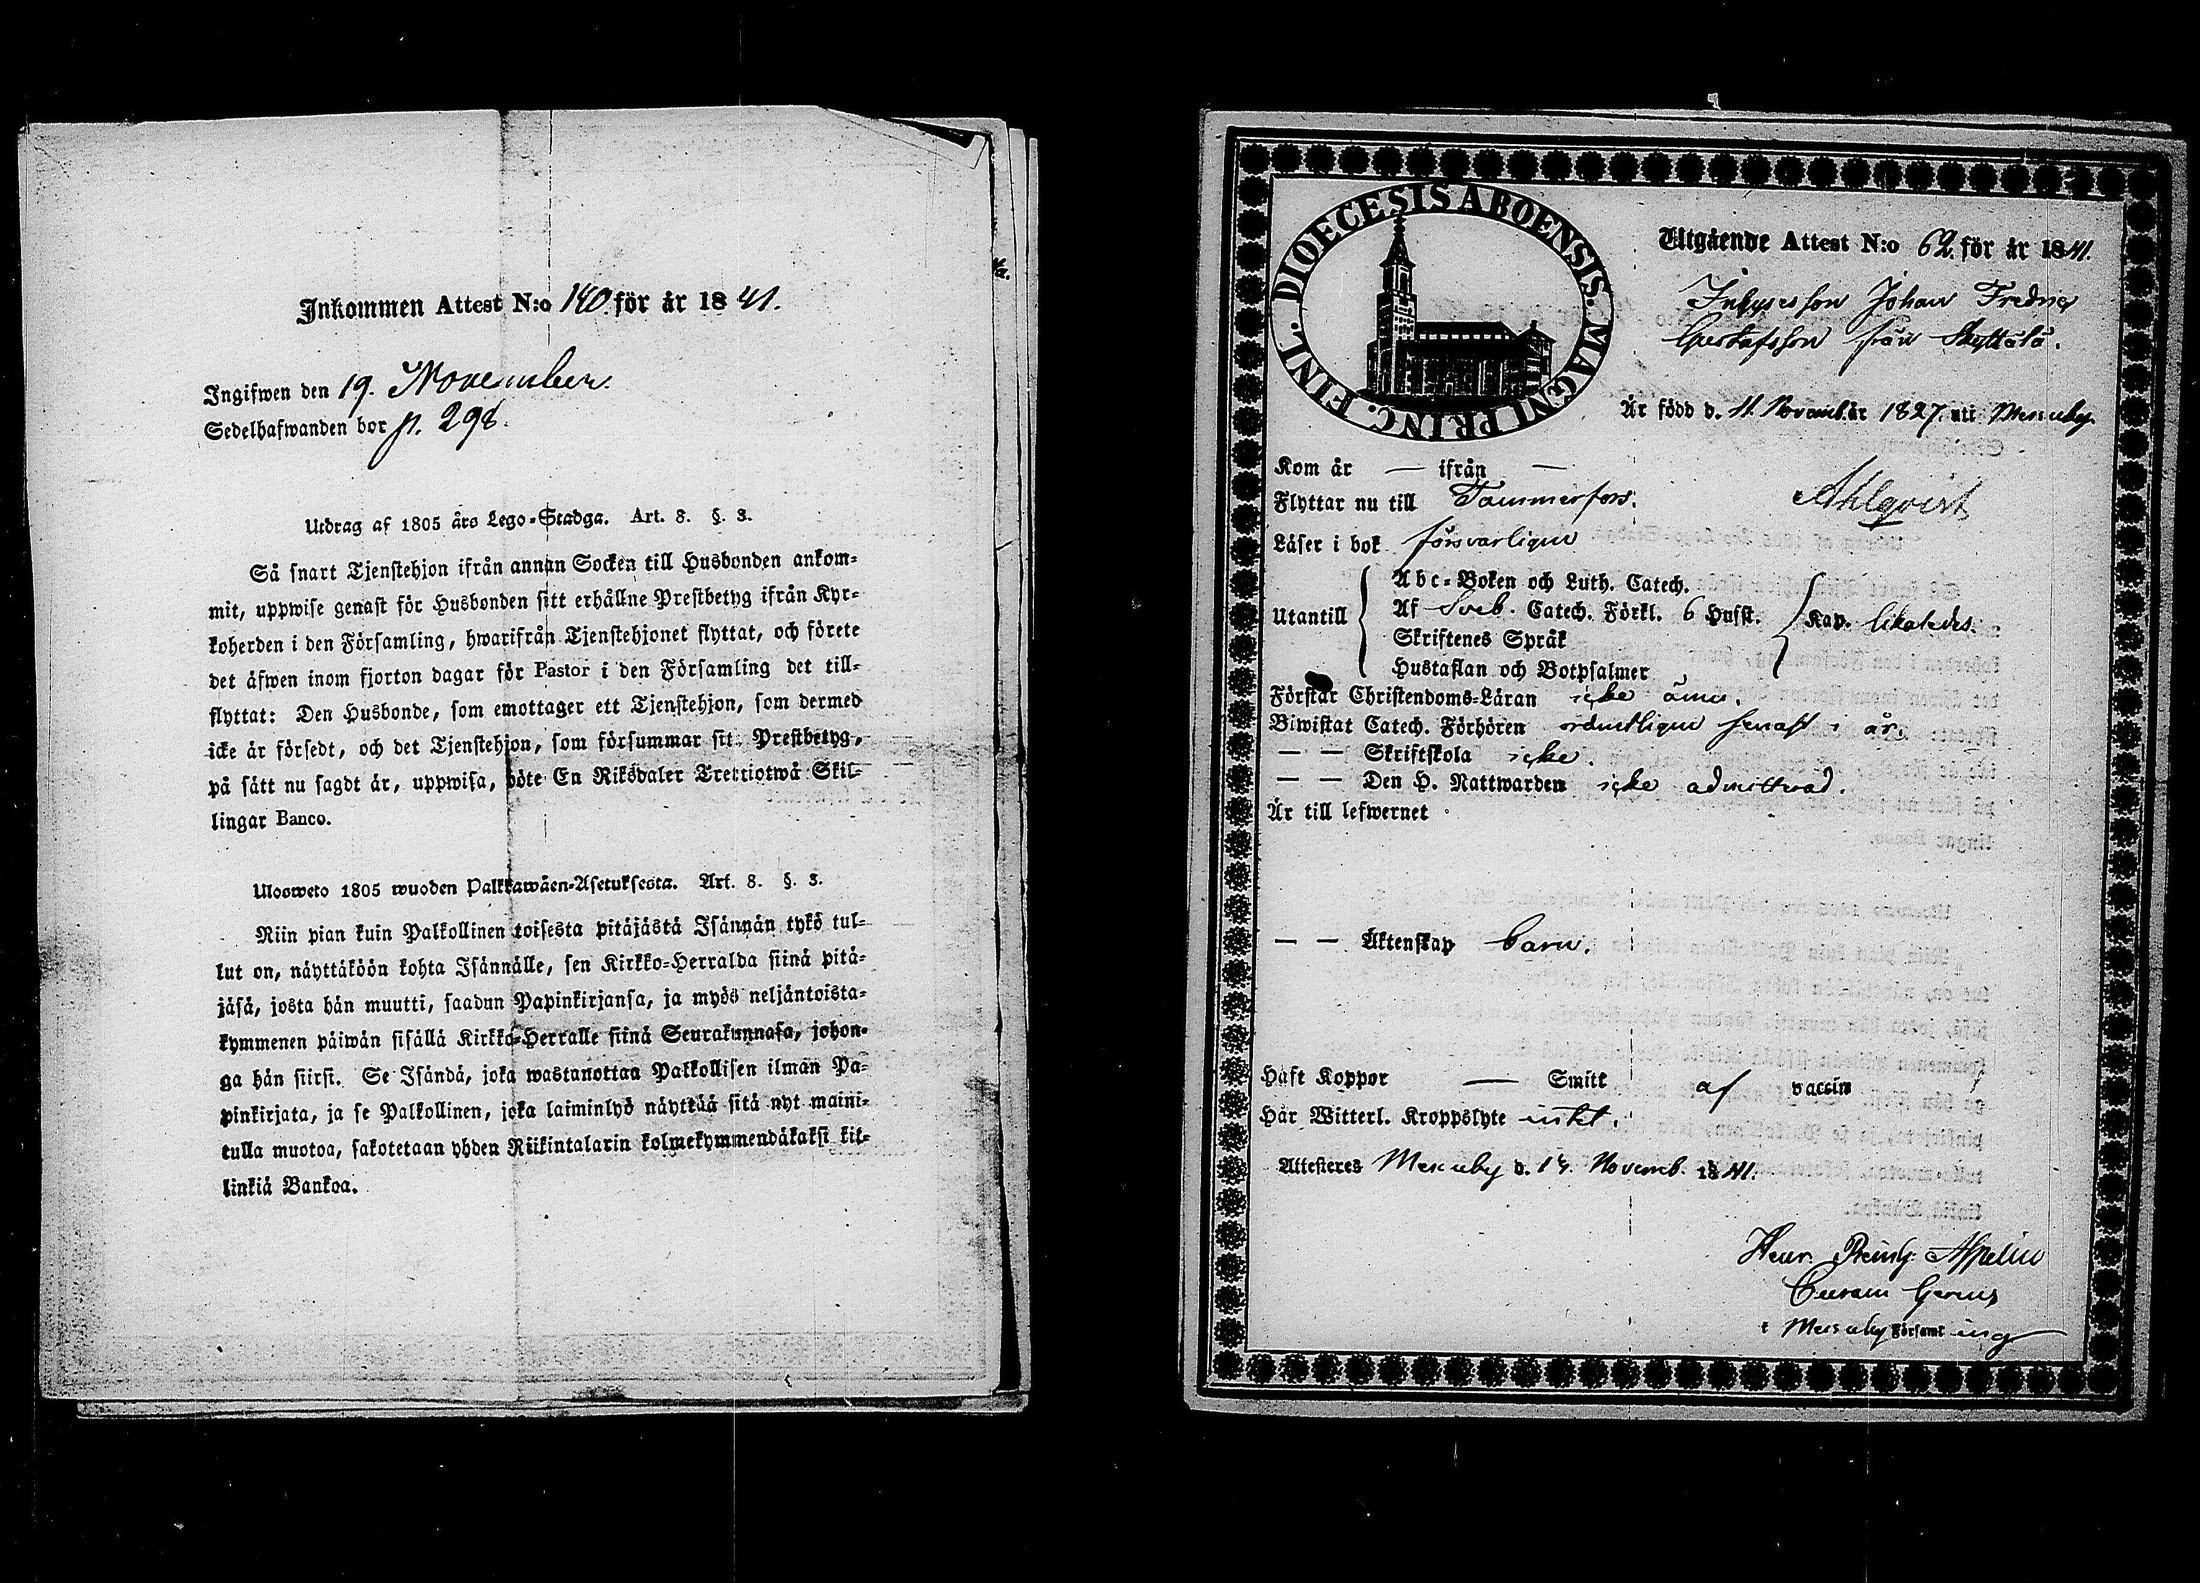 Inkommen Attest N:o 140. för år 1841.
Ingifwen den 19. November.
Sedelhafwanden bor p. 298.
Utdrag af 1805 års Lego-Stadga. Art. 8. §. 3.
Så snart Tjenstehjon ifrån annan Socken till Husbonden ankom-
mit, uppwise genast för Husbonden sitt erhållne Prestbetyg ifrån Kyr-
koherden i den Församling, hwarifrån Tjenstehjonet flyttat, och förete
det äfwen inom fjorton dagar för Pastor i den Församling det till-
flyttat: Den Husbonde, som emottager ett Tjenstehjon, som dermed
icke är försedt, och det Tjenstehjon, som försummar sit Prestbetyg,
på sätt nu sagdt är, uppwisa, böte En Riksdaler Trettiotwå Skil-
lingar Banco.
Ulosweto 1805 wuoden Palkkawäen-Asetuksesta. Art. 8. §. 3.
Niin pian kuin Palkollinen toisesta pitäjästä Isännän tykö tul-
lut on, näyttäköön kohta Isännälle, sen Kirkko-Herralda siinä pitä-
jäsä, josta hän muutti, saadun Papinkirjansa, ja myös neljäntoista-
kymmenen päiwän sisällä Kirkko-Herralle siinä Seurakunnasa, johon-
ga hän siirsi. Se Isändä, joka wastanottaa Palkollisen ilman Pa-
pinkirjata, ja se Palkollinen, joka laiminlyö näyttää sitä nyt maini-
tulla muotoa, sakotetaan yhden Riikintalarin kolmekymmendäkaksi kil-
linkiä Bankoa.
DIOECESIS ABOENSIS. MAGNI PRINC. FINL.
Utgående Attest N:o 62. för år 1841.
Johan Fredric
Gustafsson från Skyttälä.
Är född d. 11. Novemb. år 1827. uti Messuby
Kom år — ifrån —
Flyttar nu till Tammerfors. Ahlqvist
Läser i bok försvarligen
Utantill
Abc-Boken och Luth. Catech.
Af Sveb. Catech. Förkl. 6 Hufst. Kap.
Skriftenes Språk
Hustaflan och Botpsalmer
Förstår Christendoms-Läran icke ännu.
Biwistat Catech. Förhören ordentligen senast i år.
— — Skriftskola icke.
— — Den H. Nattwarden icke admitterad.
Är till lefwernet
— — Äktenskap barn.
Haft Koppor — Smitt af vaccin
Har Witterl. Kroppslyte intet.
Attesteras Messuby d. 14. Novemb. 1841.
Henr. Aspelin
i Messuby Församling